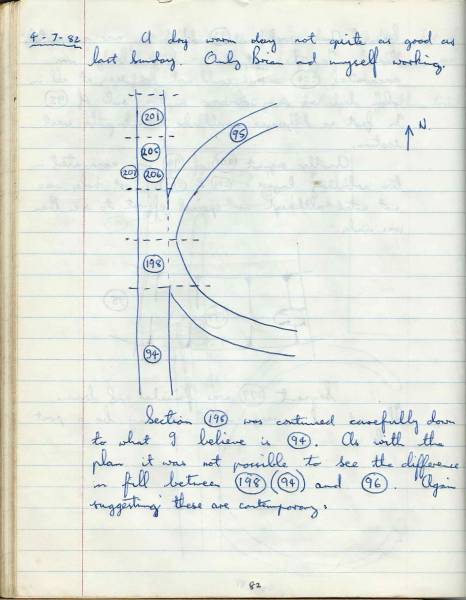 4-7-82 A dry warm day not quite as good as
last Sunday. Only Brian and myself working.
201
95
N.
205
207 206
198
94
Section 198 was continued carefully down
to what I believe is 94. As with the
plan it was not possible to see the difference
in fill between 198 (94) and 96. Again
suggesting these are contemporary.
82